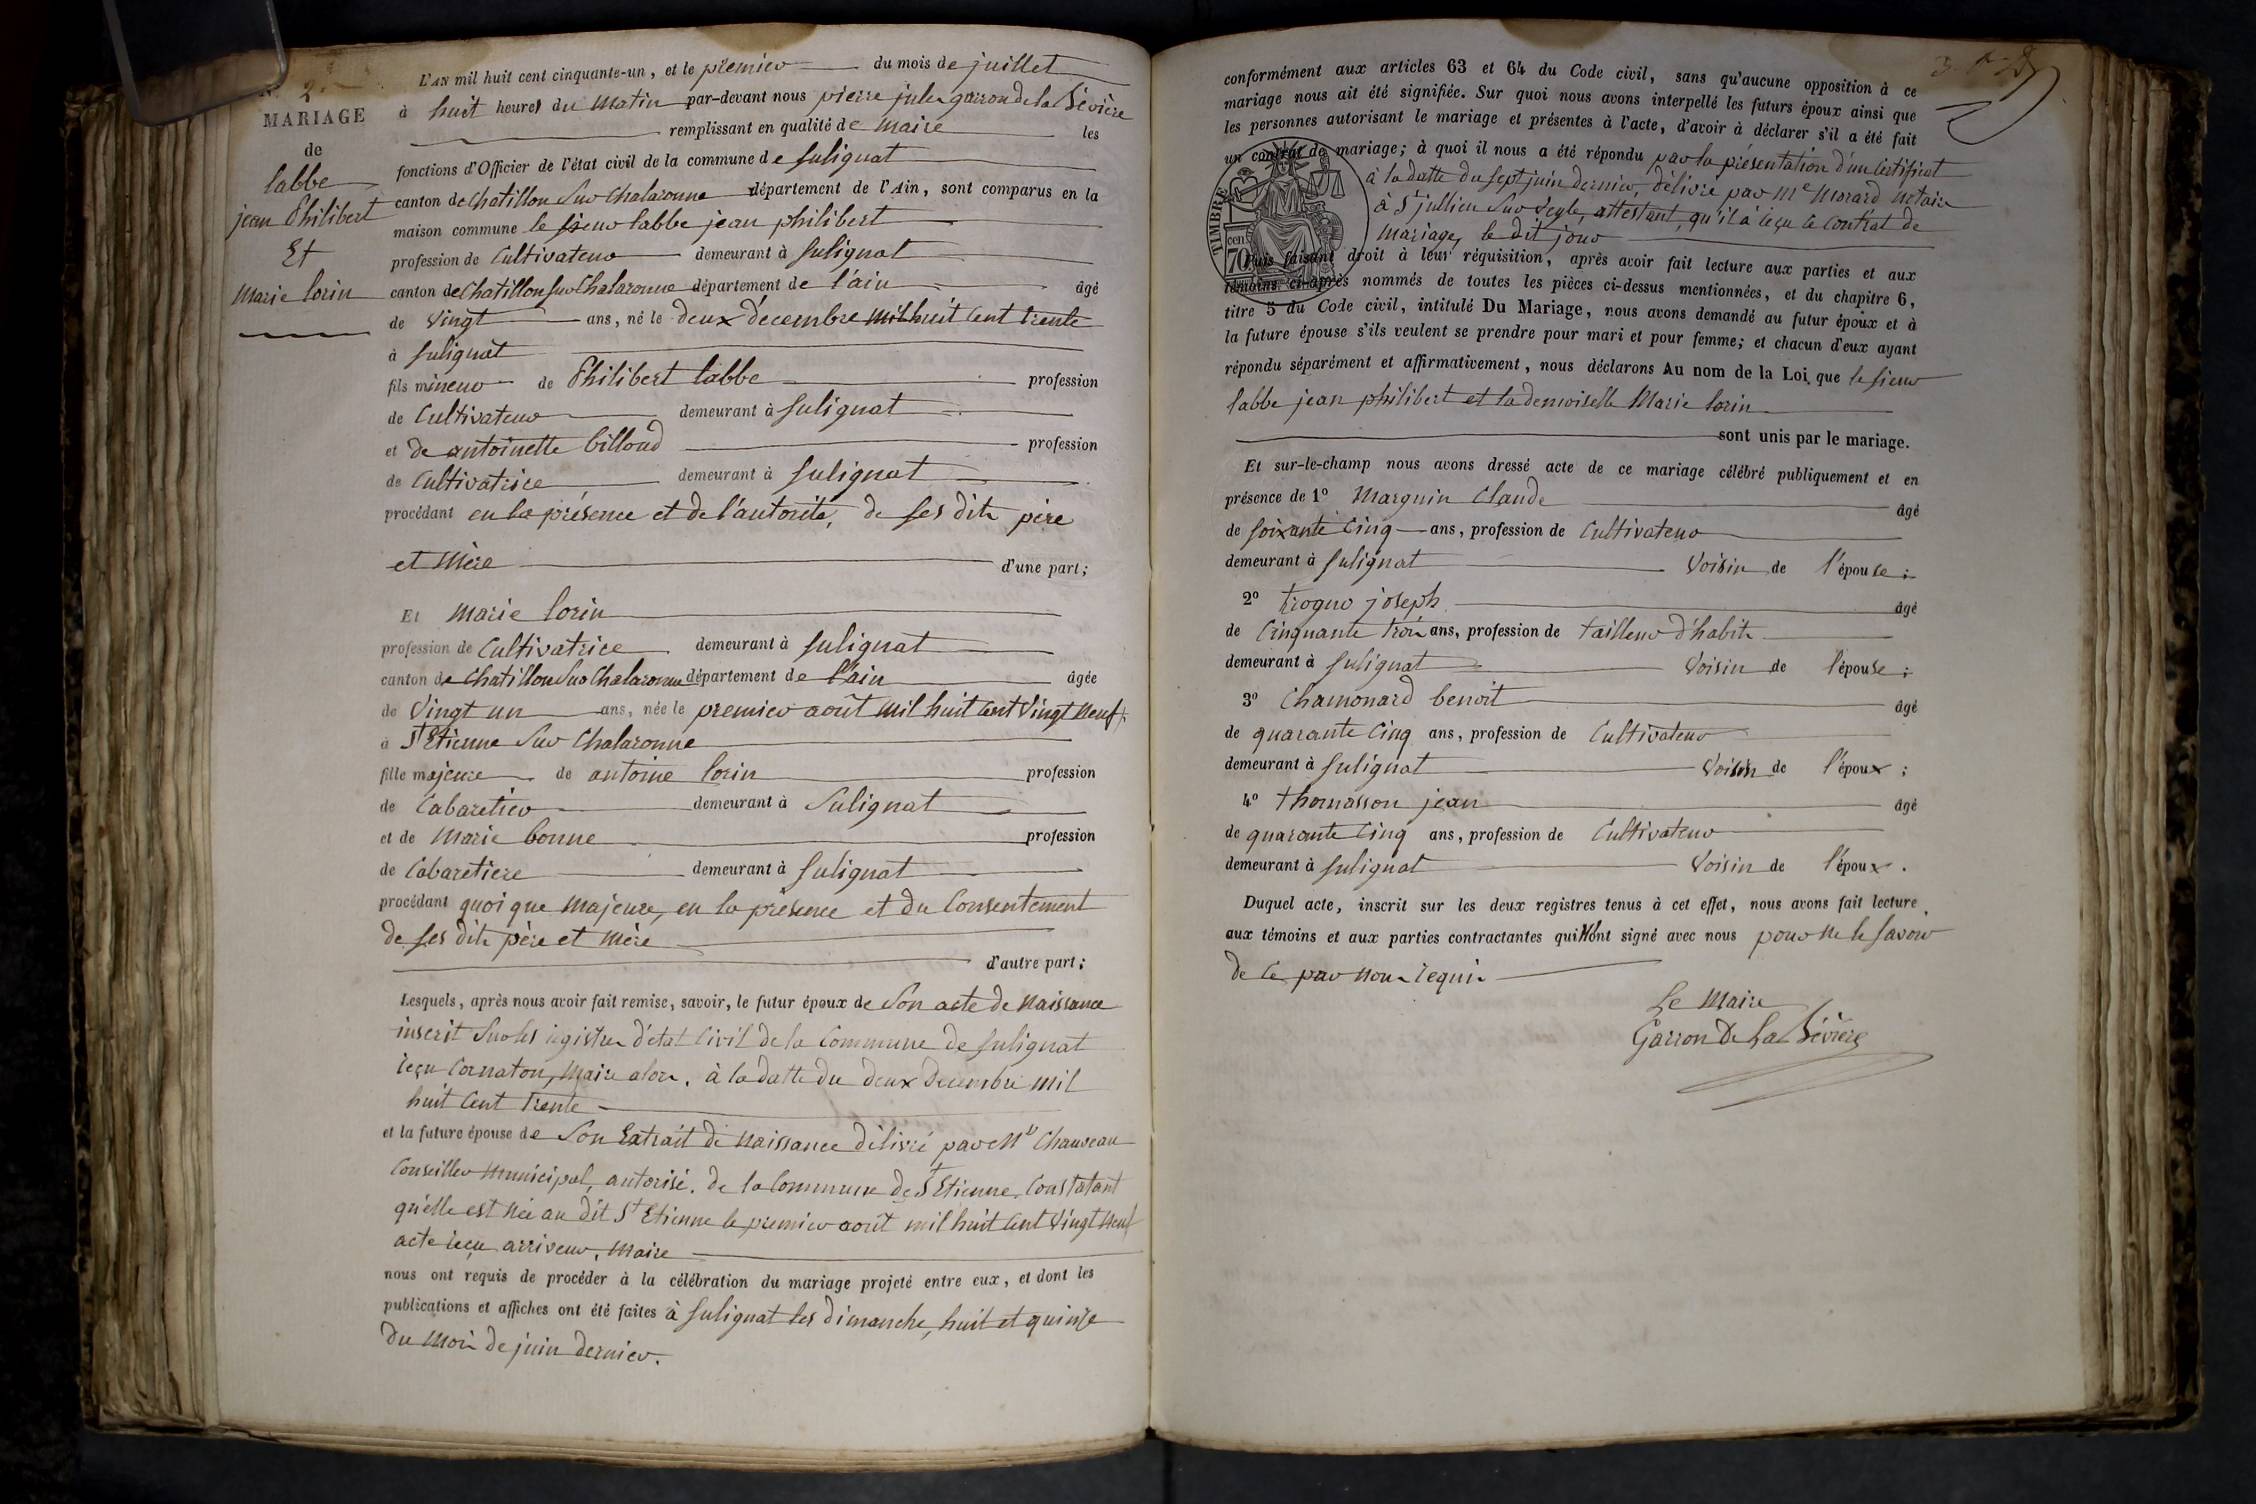 N° 2
MARIAGE
de
labbe
jean Philibert
Et
Marie lorin
L'AN mil huit cent cinquante-un, et le premier du mois de juillet
à huit heures du Matin par-devant nous pierre jules garron de la Bévière
remplissant en qualité de maire les
fonctions d'Officier de l'état civil de la commune de Sulignat
canton de Chatillon Sur Chalaronne département de l'Ain, sont comparus en la
maison commune le sieur labbe jean philibert
profession de Cultivateur demeurant à Sulignat
canton de Chatillon Sur Chalaronne département de l'ain âgé
de Vingt ans, né le deux décembre mil huit Cent trente
à Sulignat
fils mineur de Philibert labbe profession
de Cultivateur demeurant à Sulignat
et de antoinette billoud profession
de Cultivatrice demeurant à Sulignat
procédant en la présence et de l'autorité, de ses dits père
et Mère d'une part;
Et Marie lorin
profession de Cultivatrice demeurant à Sulignat
canton de Chatillon Sur Chalaronne département de l'ain âgée
de Vingt un ans, née le premier août mil huit Cent Vingt Neuf
à St Etienne Sur Chalaronne
fille majeure de antoine lorin profession
de Cabaretier demeurant à Sulignat
et de Marie bonne profession
de Cabaretiere demeurant à Sulignat
procédant quoi que Majeure, en la présence et du Consentement
de ses dits père et Mère
d'autre part;
Lesquels, après nous avoir fait remise, savoir, le futur époux de Son acte de Naissance
inscrit Sur les registres d'état Civil de la Commune de Sulignat
reçu Cornaton, Maire alors, à la datte du deux Decembre Mil
huit Cent trente
et la future épouse de Son Extrait de Naissance délivré par Mr Chauveau
Conseiller Municipal, autorisé. de la Commune de St Etienne, Constatant
qu'elle est née au dit St Etienne le premier août mil huit Cent Vingt Neuf
acte reçu arriveur, Maire
nous ont requis de procéder à la célébration du mariage projeté entre eux, et dont les
publications et affiches ont été faites à Sulignat les dimanche, huit et quinze
du Mois de juin dernier.
conformément aux articles 63 et 64 du Code civil, sans qu'aucune opposition à ce
mariage nous ait été signifiée. Sur quoi nous avons interpellé les futurs époux ainsi que
les personnes autorisant le mariage et présentes à l'acte, d'avoir à déclarer s'il a été fait
un contrat de mariage; à quoi il nous a été répondu par la présentation d'un Certificat
à la datte du Sept juin dernier, délivré par Me Morard Notaire
à St jullien Sur Veyle, attestant, qu'il a reçu le Contrat de
Mariage, le dit jour
TIMBRE
cen
70
Puis faisant droit à leur réquisition, après avoir fait lecture aux parties et aux
témoins ci-après nommés de toutes les pièces ci-dessus mentionnées, et du chapitre 6,
titre 5 du Code civil, intitulé Du Mariage, nous avons demandé au futur époux et à
la future épouse s'ils veulent se prendre pour mari et pour femme; et chacun d'eux ayant
répondu séparément et affirmativement, nous déclarons Au nom de la Loi que le sieur
labbe jean philibert et la demoiselle Marie lorin
sont unis par le mariage.
Et sur-le-champ nous avons dressé acte de ce mariage célébré publiquement et en
présence de 1° Marguin Claude âgé
de soixante Cinq ans, profession de Cultivateur
demeurant à Sulignat Voisin de l'épouse;
2° trogno joseph âgé
de Cinquante trois ans, profession de tailleur d'habits
demeurant à Sulignat Voisin de l'épouse;
3° Chamonard benoit âgé
de quarante Cinq ans, profession de Cultivateur
demeurant à Sulignat Voisin de l'époux;
4° thomasson jean âgé
de quarante Cinq ans, profession de Cultivateur
demeurant à Sulignat Voisin de l'époux.
Duquel acte, inscrit sur les deux registres tenus à cet effet, nous avons fait lecture
aux témoins et aux parties contractantes qui N'ont signé avec nous pour ne le savoir
de ce par Nous requis
Le Maire
Garron De La Bévière